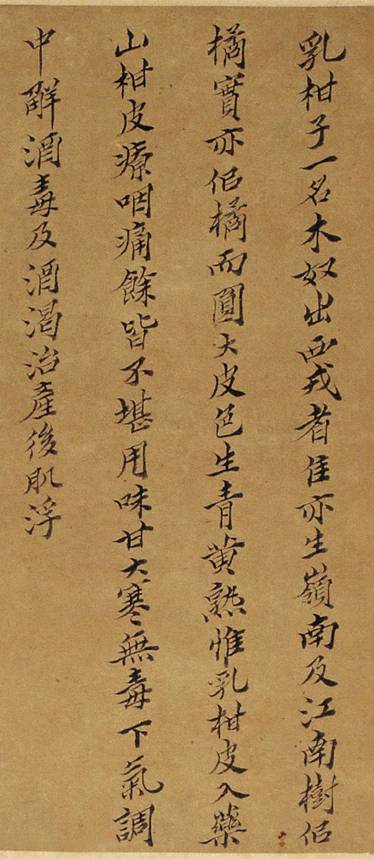 乳柑子一名木奴出西戎者佳亦生嶺南及江南樹佀
橘實亦佀橘而圓大皮色生青黄熟惟乳柑皮入藥
山柑皮療咽痛餘皆不堪用味甘大寒無毒下氣調
中解酒毒及酒渴治產後肌浮